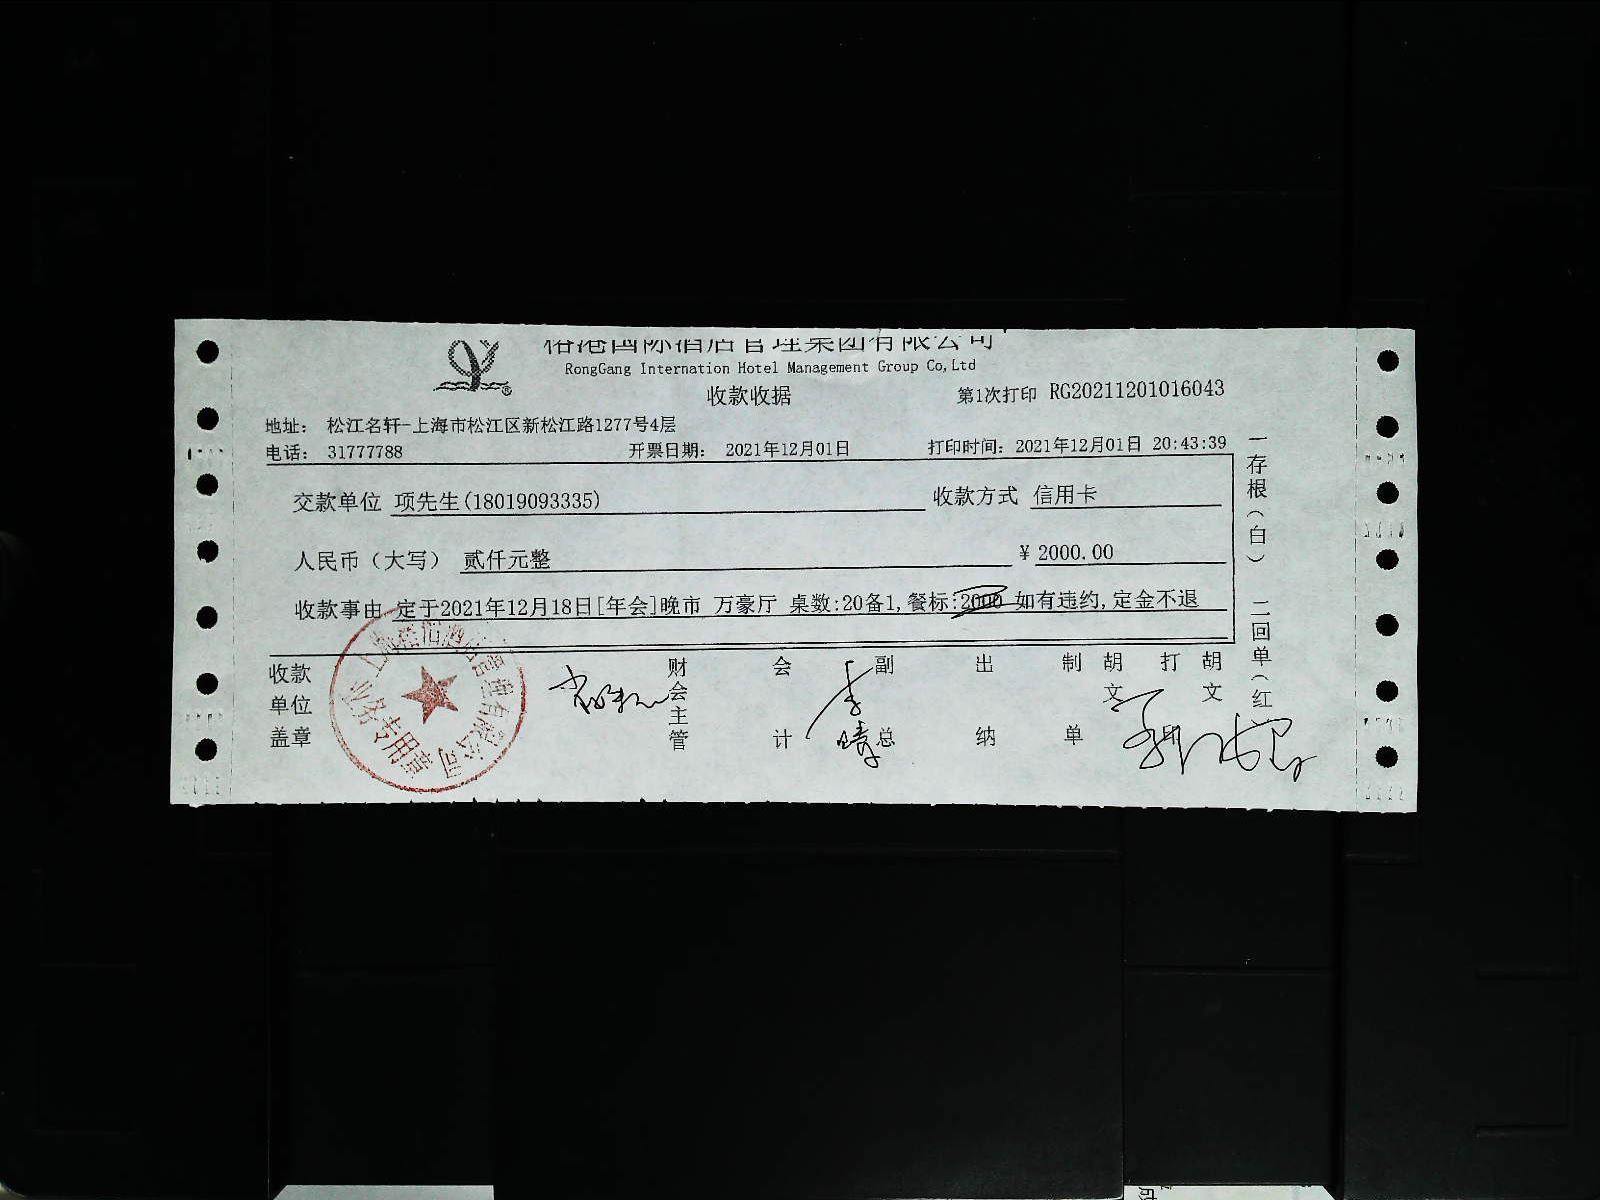 榕港国际酒店管理集团有限公司
RongGang Internation Hotel Management Group Co,Ltd
收款收据
第1次打印 RG20211201016043
地址: 松江名轩-上海市松江区新松江路1277号4层
电话: 31777788 开票日期: 2021年12月01日 打印时间: 2021年12月01日 20:43:39
交款单位 项先生(18019093335) 收款方式 信用卡
人民币（大写） 贰仟元整 ¥2000.00
收款事由 定于2021年12月18日[年会]晚市 万豪厅 桌数:20备1,餐标:2000 如有违约,定金不退
收款单位盖章
财会主管
会计
副总
出纳
制单
胡文
打
胡文
一存根（白） 二回单（红
业务专用章